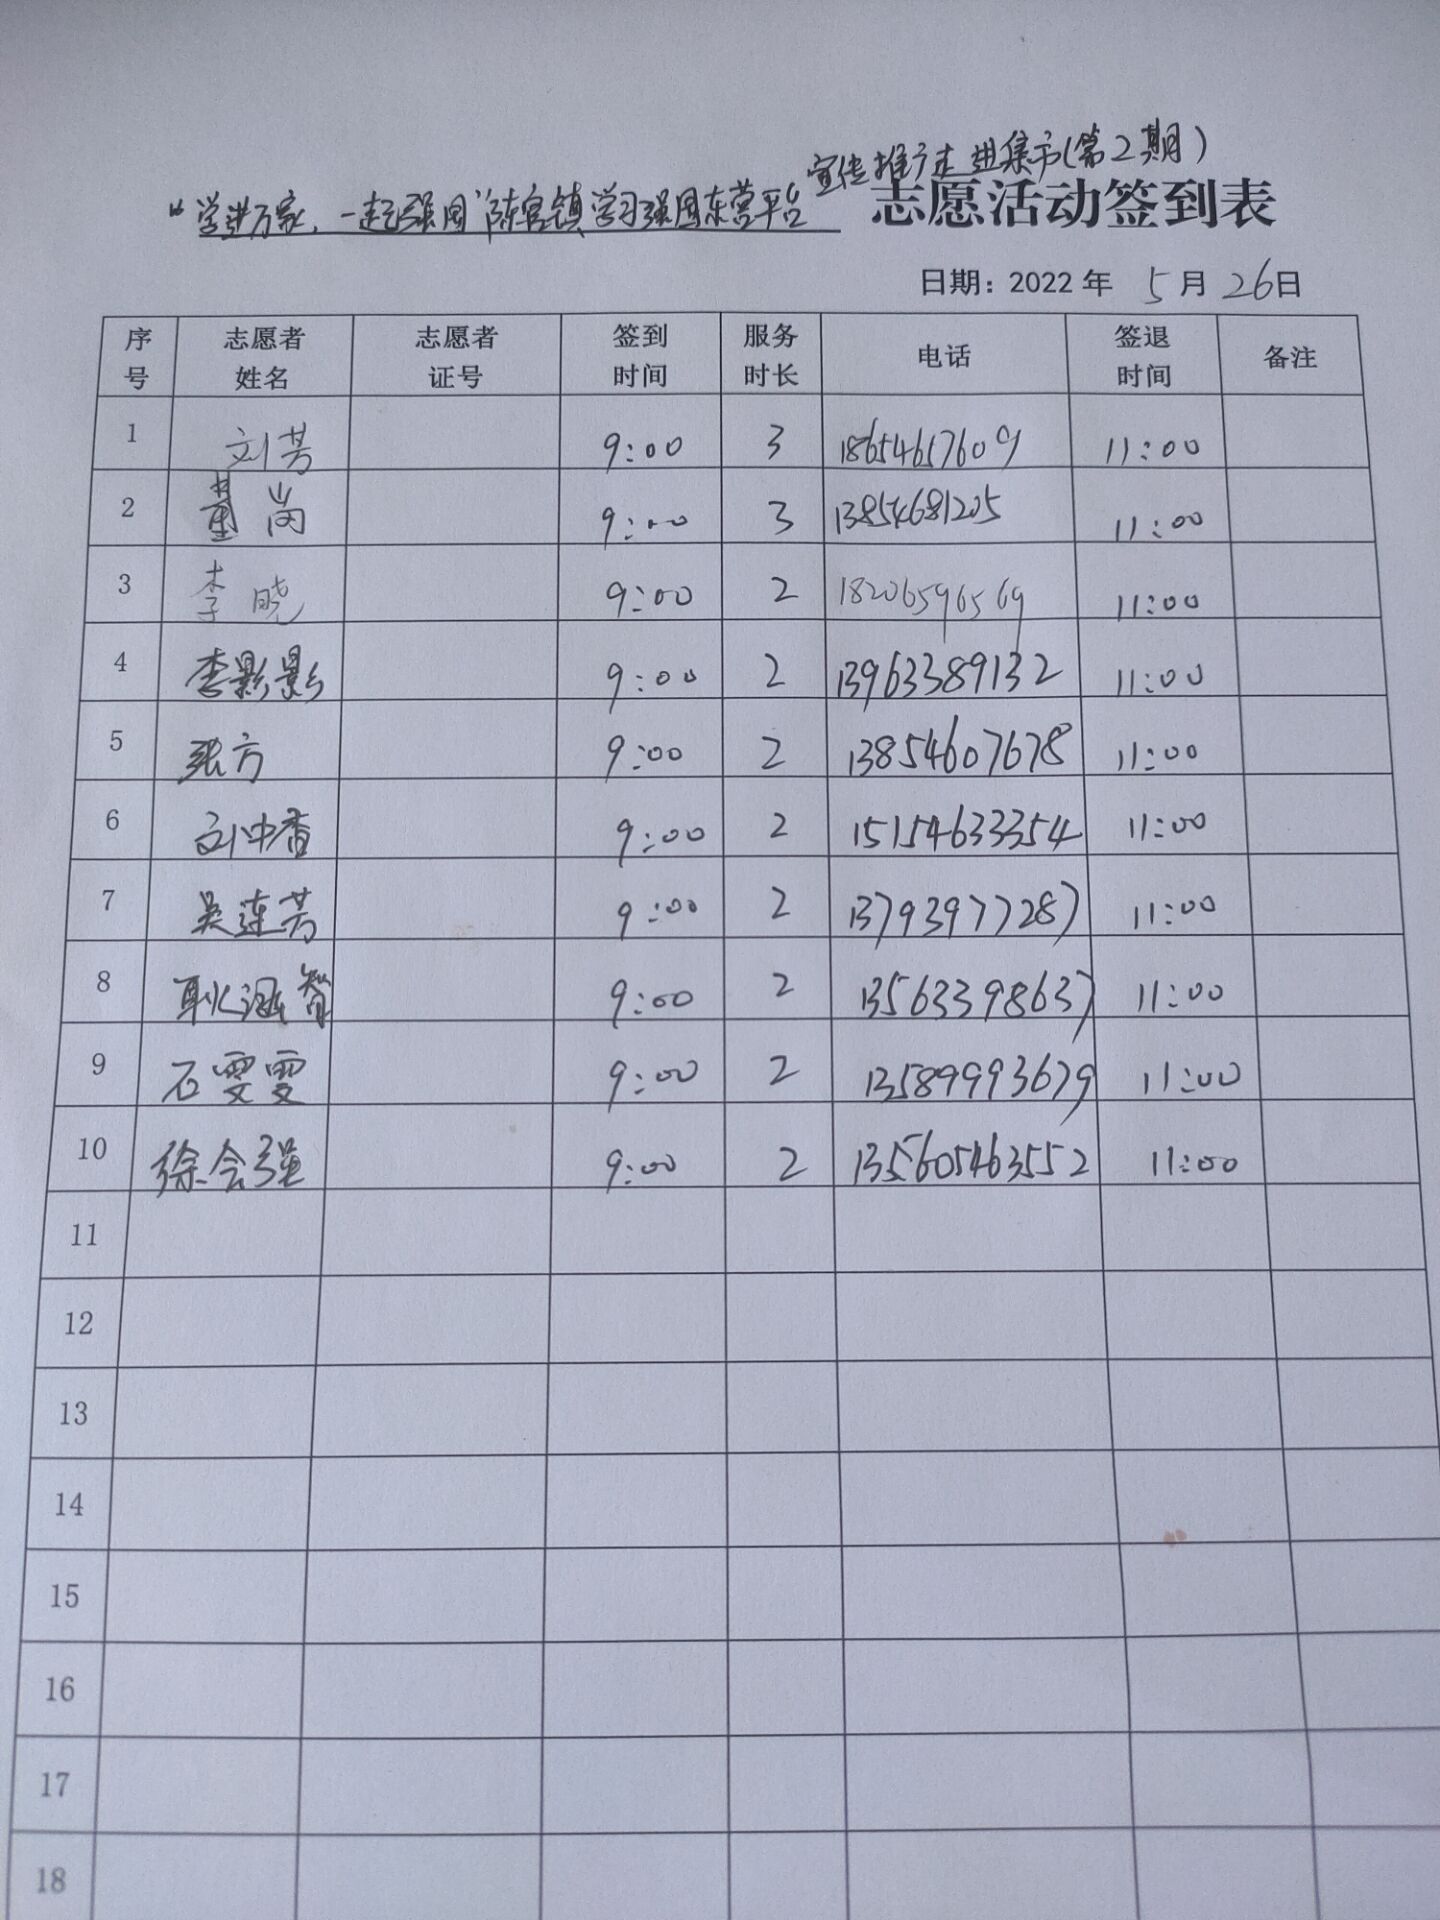 宣传推广走进集市(第2期)
“学进万家,一起强国”陈官镇学习强国东营平台 志愿活动签到表
日期：2022 年 5 月 26 日
序号 志愿者姓名 志愿者证号 签到时间 服务时长 电话 签退时间 备注
1 刘芳 9:00 3 18654657609 11:00
2 董岗 9:00 3 13854681205 11:00
3 李晓 9:00 2 18206596569 11:00
4 李影影 9:00 2 13963389132 11:00
5 张方 9:00 2 13854607678 11:00
6 刘中香 9:00 2 15154633354 11:00
7 吴连芳 9:00 2 13793977287 11:00
8 耿涵智 9:00 2 13563398637 11:00
9 石雯雯 9:00 2 13589993679 11:00
10 徐会强 9:00 2 135605463552 11:00
11
12
13
14
15
16
17
18